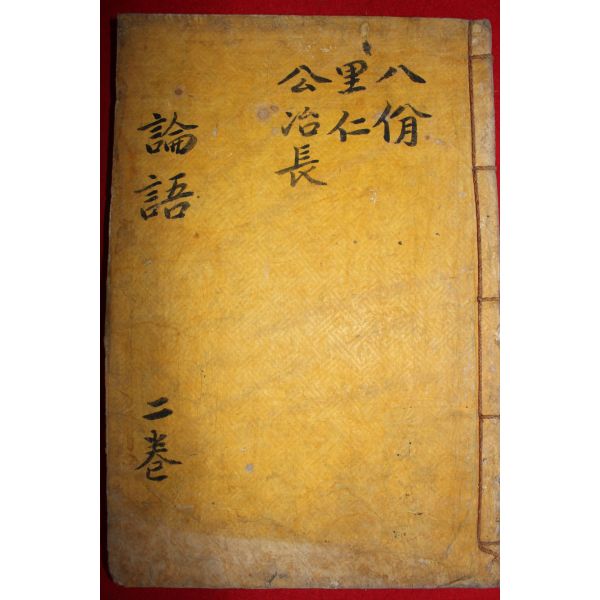 八佾
里仁
公冶長
論語
二巻